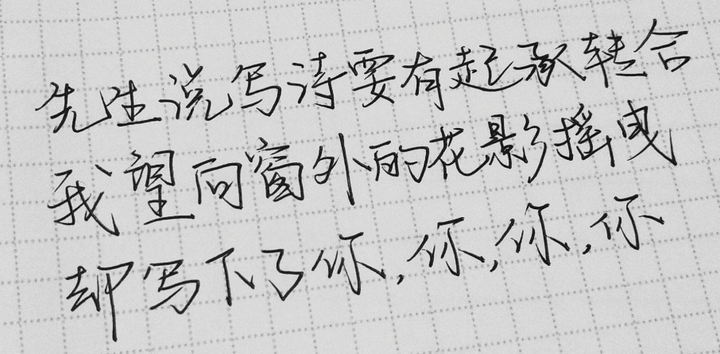 先生说写诗要有起承转合
我望向窗外的花影摇曳
却写下了你,你,你,你